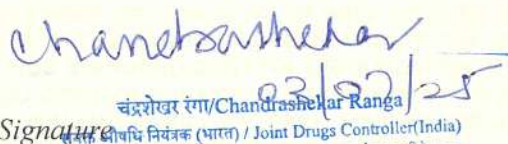 Chandrashekar
03/07/25
चंद्रशेखर रंगा/Chandrashekar Ranga
Signature औषधि नियंत्रक (भारत) / Joint Drugs Controller(India)